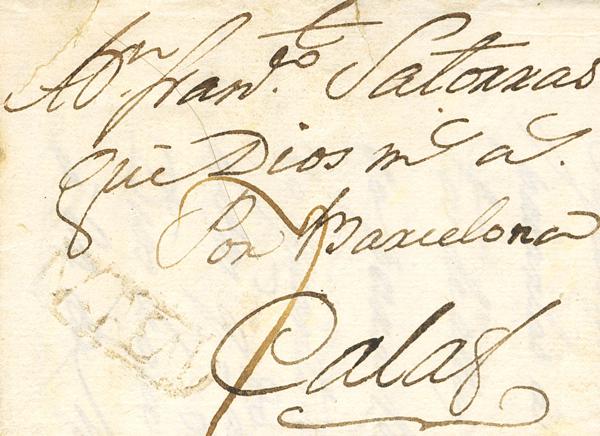 A Dn. Franco. Satorras
que Dios ms. as.
Por Barcelona
7
Calaf